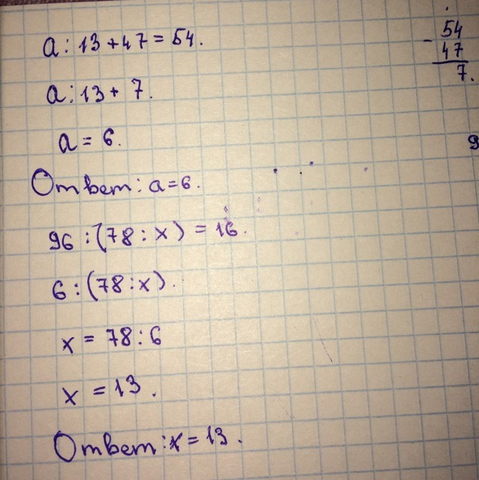 a : 13 + 47 = 54.
a : 13 + 7.
a = 6.
Ответ: a = 6.
96 : (78 : x) = 16.
6 : (78 : x).
x = 78 : 6
x = 13.
Ответ: x = 13.
- 54
47
7.
9